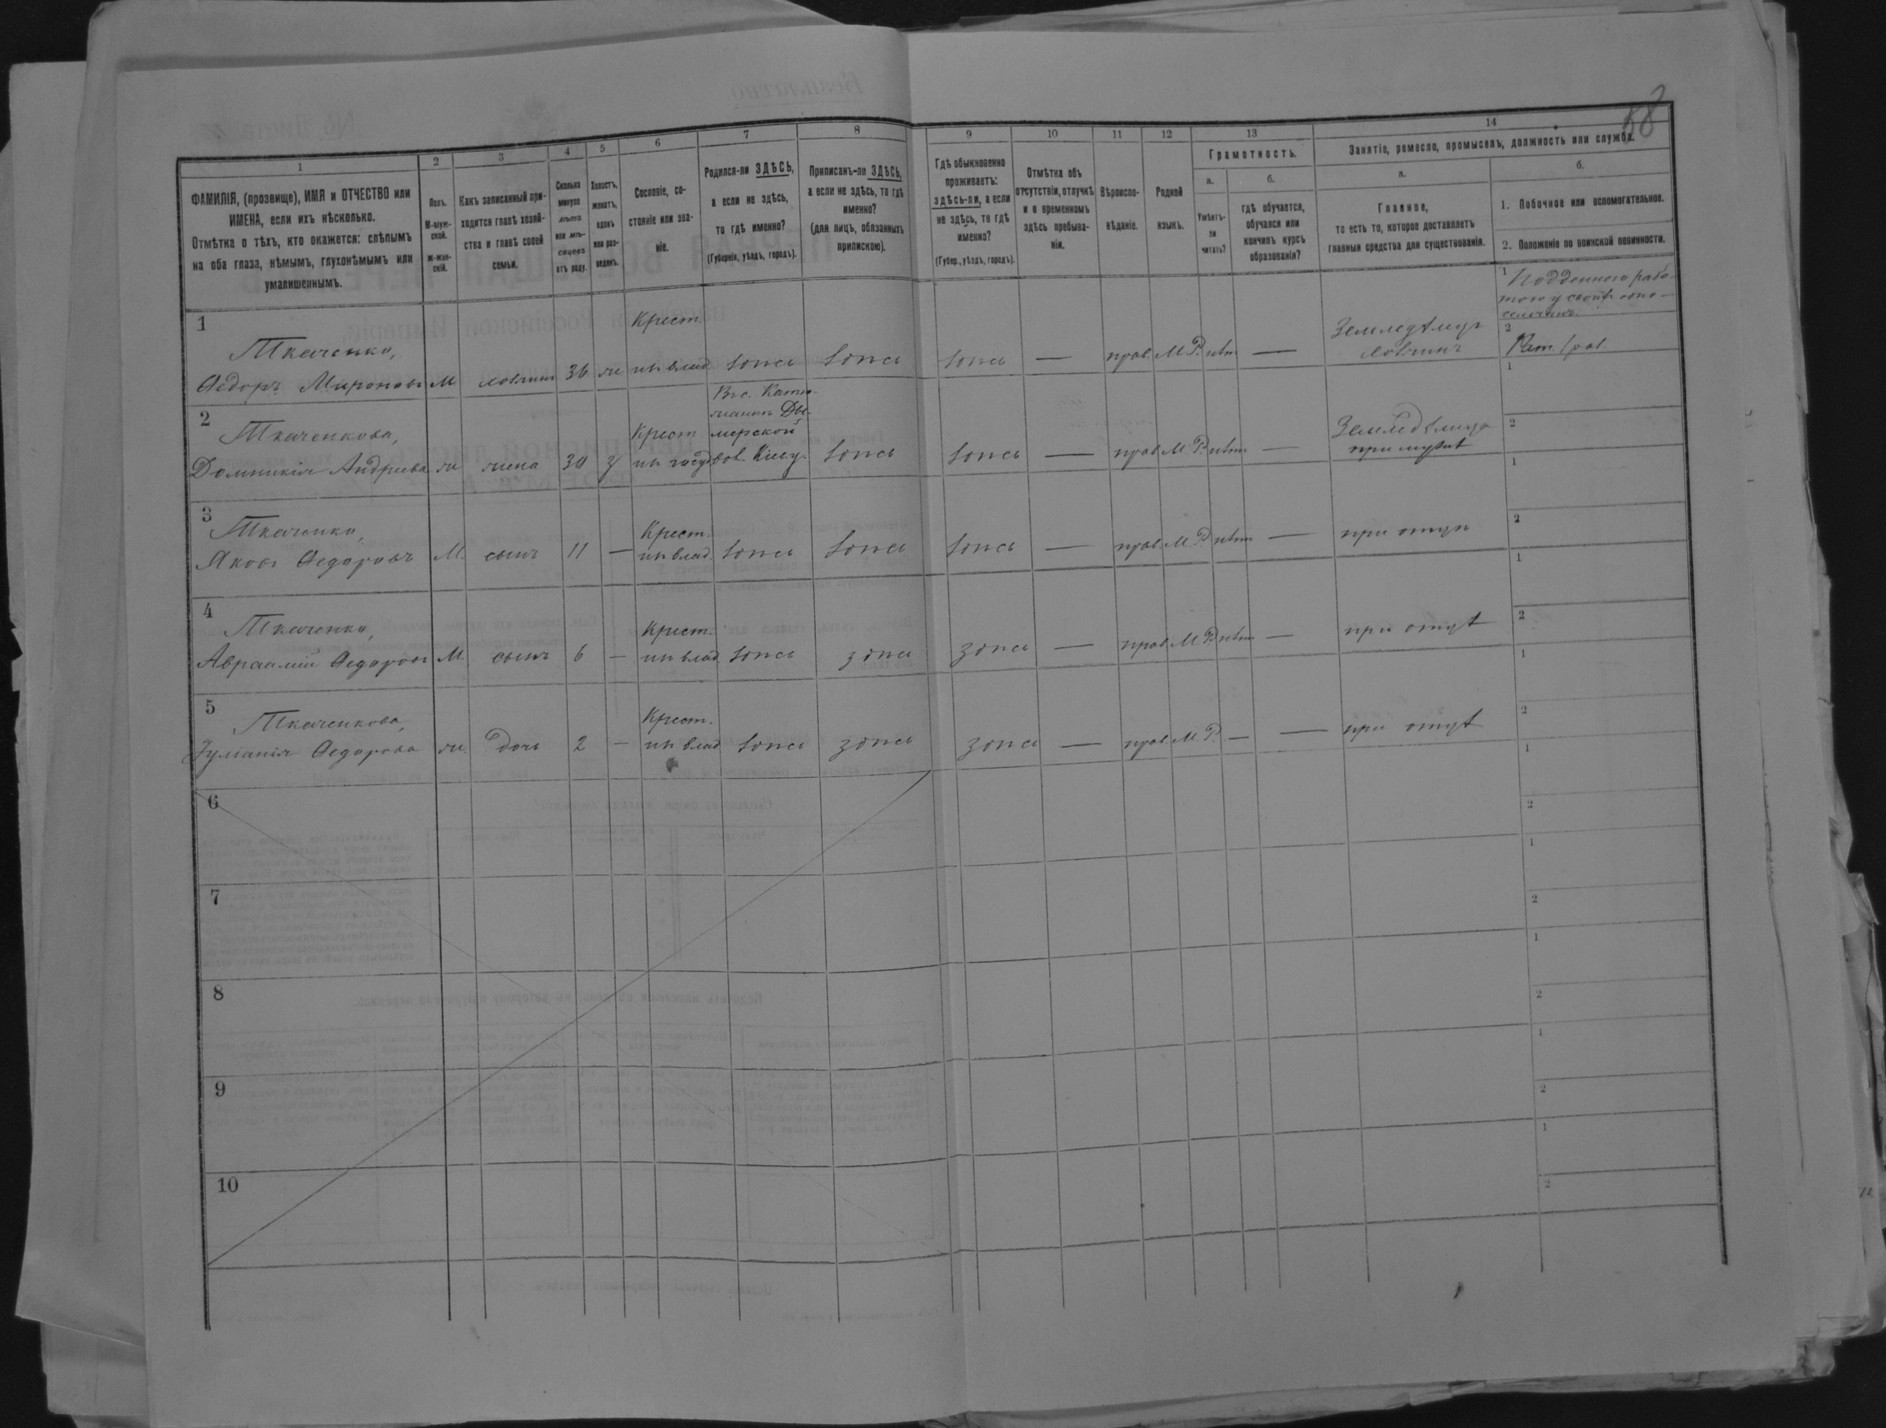 58
1
2
3
4
5
6
7
8
9
10
11
12
13
14
ФАМИЛІЯ, (прозвище), ИМЯ и ОТЧЕСТВО или
ИМЕНА, если ихъ нѣсколько.
Отмѣтка о тѣхъ, кто окажется: слѣпымъ
на оба глаза, нѣмымъ, глухонѣмымъ или
умалишеннымъ.
Полъ.
М-муж-
ской.
Ж-жен-
скій.
Какъ записанный при-
ходится главѣ хозяй-
ства и главѣ своей
семьи.
Сколько
минуло
лѣтъ
или мѣ-
сяцевъ
отъ роду.
Холостъ,
женатъ,
вдовъ
или раз-
веденъ.
Сословіе, со-
стояніе или зва-
ніе.
Родился-ли ЗДѢСЬ,
а если не здѣсь,
то гдѣ именно?
(Губернія, уѣздъ, городъ).
Приписанъ-ли ЗДѢСЬ,
а если не здѣсь, то гдѣ
именно?
(для лицъ, обязанныхъ
припиською).
Гдѣ обыкновенно
проживаетъ:
здѣсь-ли, а если
не здѣсь, то гдѣ
именно?
(Губер., уѣздъ, городъ).
Отмѣтка объ
отсутствіи, отлучкѣ
и о временномъ
здѣсь пребыва-
ніи.
Вѣроиспо-
вѣданіе.
Родной
языкъ.
Грамотность.
а.
Умѣетъ-
ли
читать?
б.
гдѣ обучается,
обучался или
кончилъ курсъ
образованія?
Занятіе, ремесло, промыселъ, должность или служба.
а.
Главное,
то есть то, которое доставляетъ
главныя средства для существованія.
б.
1. Побочное или вспомогательное.
2. Положеніе по воинской повинности.
1
Ткаченко,
Ѳедоръ Мироновъ
М
хозяинъ
36
ж
Крест.
из влад
здесь
здесь
здесь
—
прав.
М.Р.
нѣт
—
Земледѣлец
хозяинъ
1
2
Рат
2
Ткаченкова,
Домникія Андреева
ж
жена
30
з
Крест
из госуд
мерской
вол. Кіев у.
здесь
здесь
—
прав
М.Р.
нѣт
—
Земледѣлица
при мужѣ
1
2
3
Ткаченко,
Яковъ Ѳедоровъ
М.
сынъ
11
—
Крест.
из влад
здесь
здесь
здесь
—
прав.
М.Р.
нѣт
—
при отцѣ
1
2
4
Ткаченко,
Авраамій Ѳедоровъ
М.
сынъ
6
—
Крест.
из влад
здесь
здесь
здесь
—
прав.
М.Р.
нѣт
—
при отцѣ
1
2
5
Ткаченкова,
Іуліанія Ѳедорова
ж.
дочь
2
—
Крест.
из влад
здесь
здесь
здесь
—
прав.
М.Р.
—
—
при отцѣ
1
2
6
1
2
7
1
2
8
1
2
9
1
2
10
1
2